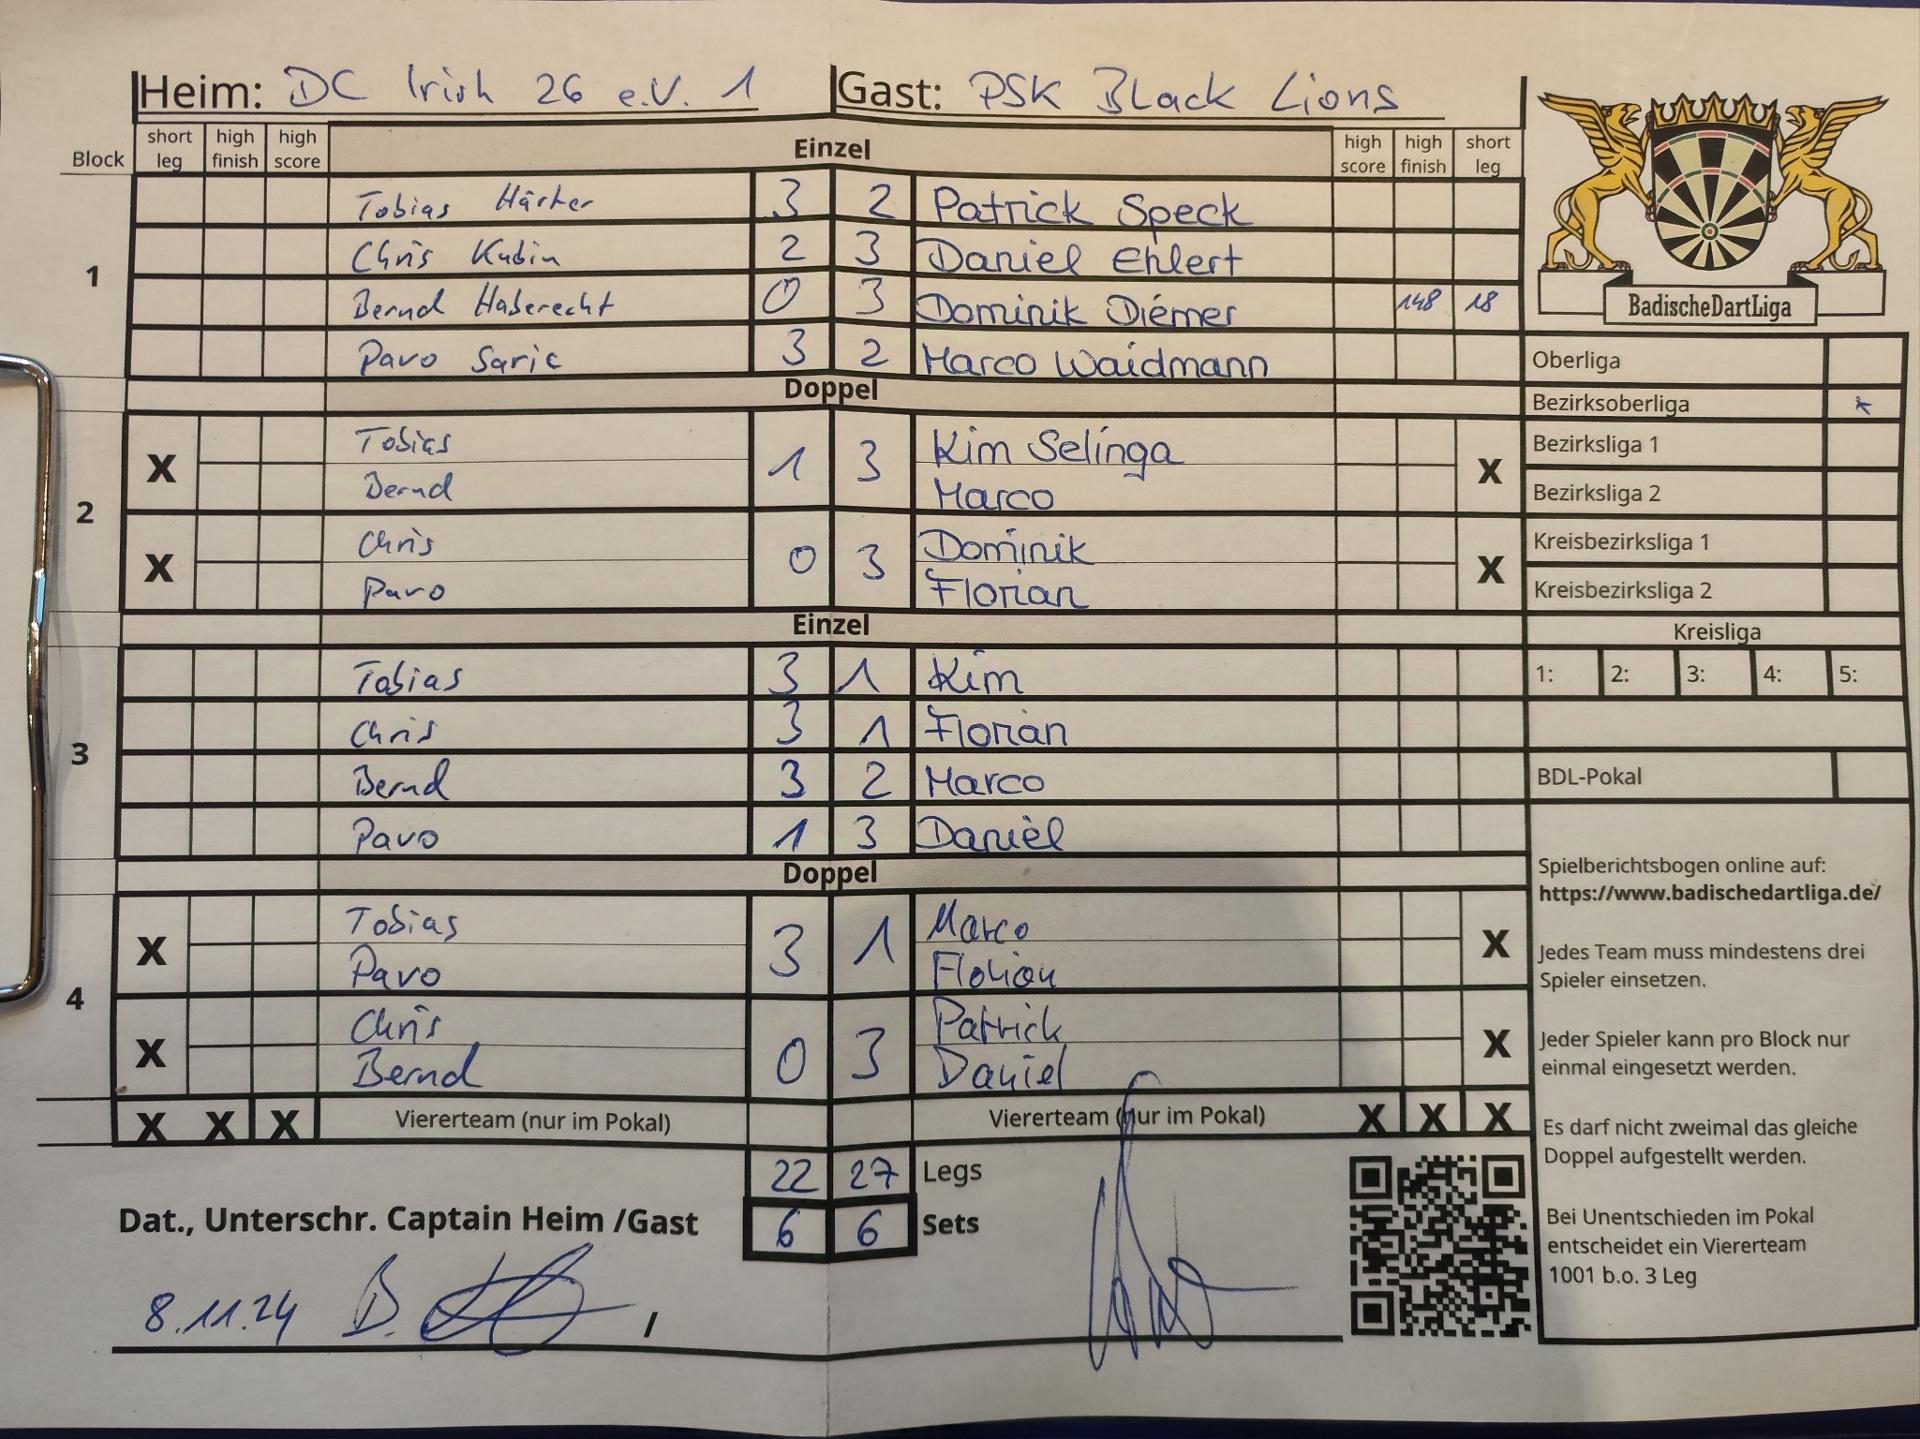 Heim: DC Irish 26 e.V. 1 Gast: PSK Black Lions
Block short leg high finish high score Einzel high score high finish short leg
1
Tobias Härter 3 2 Patrick Speck
Chris Kubin 2 3 Daniel Ehlert
Bernd Haberecht 0 3 Dominik Diemer 148 18
Pavo Saric 3 2 Marco Waidmann
Doppel
2
X Tobias 1 3 Kim Selinga X
Bernd Marco
X Chris 0 3 Dominik X
Pavo Florian
Einzel
3
Tobias 3 1 Kim
Chris 3 1 Florian
Bernd 3 2 Marco
Pavo 1 3 Daniel
Doppel
4
X Tobias 3 1 Marco X
Pavo Florian
X Chris 0 3 Patrick X
Bernd Daniel
X X X Viererteam (nur im Pokal) Viererteam (nur im Pokal) X X X
22 27 Legs
Dat., Unterschr. Captain Heim /Gast 6 6 Sets
8.11.24 B. /
BadischeDartLiga
Oberliga
Bezirksoberliga x
Bezirksliga 1
Bezirksliga 2
Kreisbezirksliga 1
Kreisbezirksliga 2
Kreisliga
1: 2: 3: 4: 5:
BDL-Pokal
Spielberichtsbogen online auf:
https://www.badischedartliga.de/
Jedes Team muss mindestens drei
Spieler einsetzen.
Jeder Spieler kann pro Block nur
einmal eingesetzt werden.
Es darf nicht zweimal das gleiche
Doppel aufgestellt werden.
Bei Unentschieden im Pokal
entscheidet ein Viererteam
1001 b.o. 3 Leg